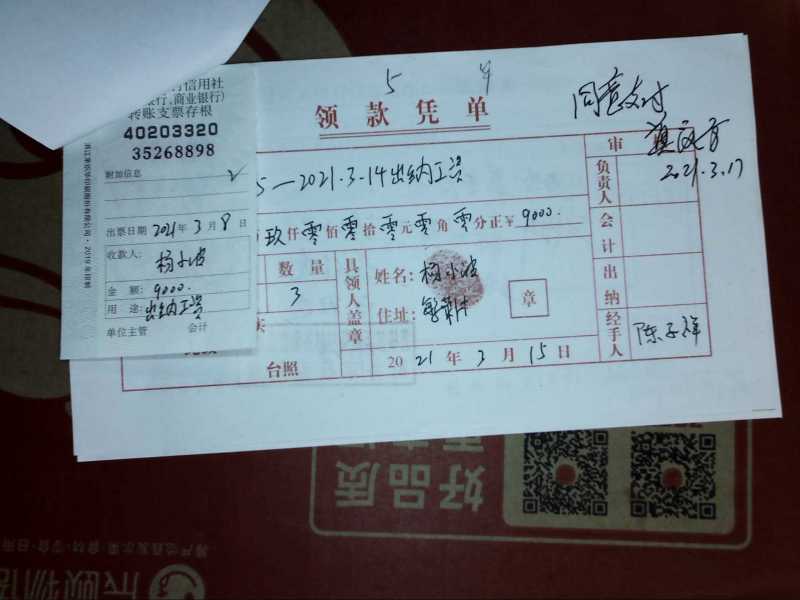 5
领款凭单
同意支付
2021.3.17
信用社
行、商业银行)
转账支票存根
40203320
35268898
附加信息
出票日期 2021年3月8日
收款人:
杨小波
金额: 9000.
用途: 出纳工资
单位主管 会计
5—2021.3.14出纳工资
玖仟零佰零拾零元零角零分正¥9000.
数量
3
具领人盖章
姓名: 杨小波
住址:
章
台照
2021年3月15日
审
负责人
会计
出纳
经手人
陈子祥
好品质